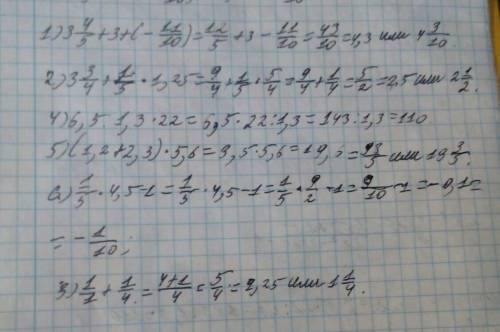 1) 3 4/5 + 3 + (- 11/10) = 12/5 + 3 - 11/10 = 43/10 = 4,3 или 4 3/10.
2) 3 3/4 + 1/5 · 1,25 = 9/4 + 1/5 · 5/4 = 9/4 + 1/4 = 5/2 = 2,5 или 2 1/2.
4) 6,5 : 1,3 · 22 = 6,5 · 22 : 1,3 = 143 : 1,3 = 110
5) (1,2 + 2,3) · 5,6 = 3,5 · 5,6 = 19, = или 19 3/5.
1/5 · 4,5 - 1 = 1/5 · 4,5 - 1 = 1/5 · 9/2 - 1 = 9/10 - 1 = - 0,1 =
= - 1/10;
3) 1/1 + 1/4 = 4+1/4 = 5/4 = 1,25 или 1 1/4.